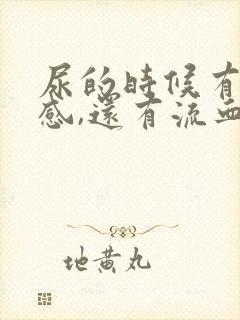 尿的時候有
感,還有流血
地黄丸